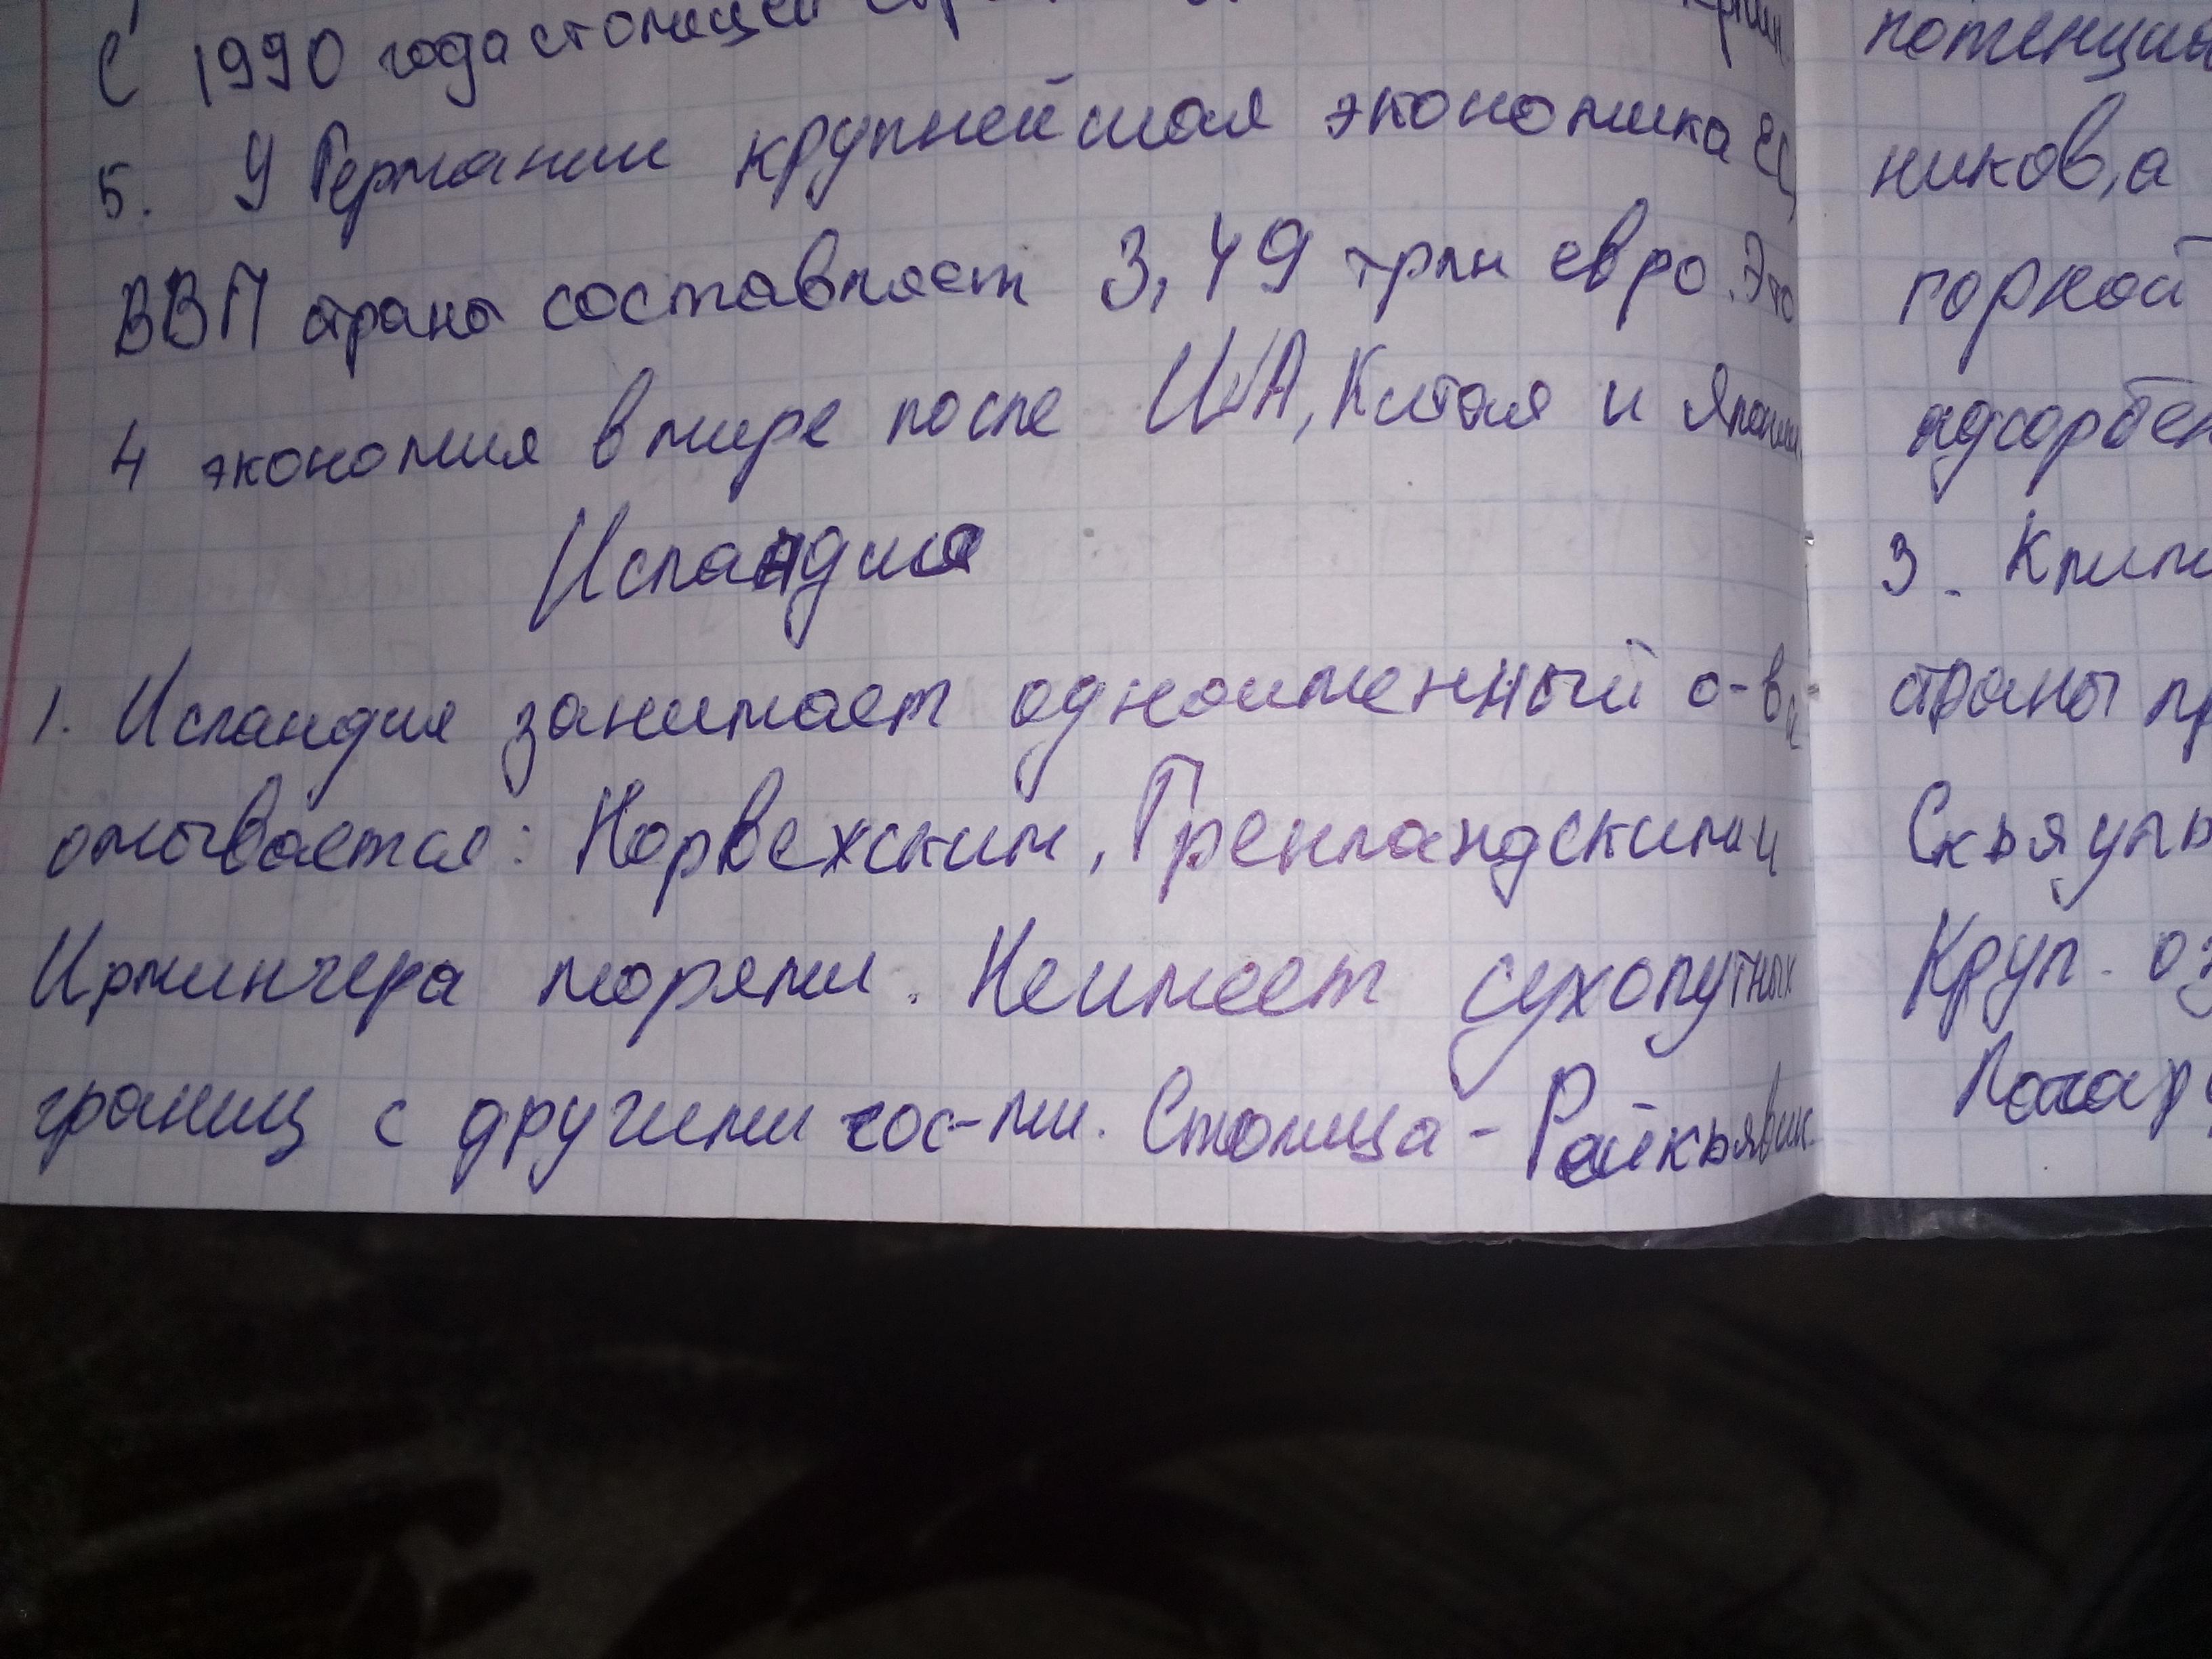 С 1990 года столицей
5. У Германии крупнейшая экономика ЕС
ВВП страны составляет 3,49 трлн евро. Это
4 экономия в мире после США, Китая и Японии.
Исландия
1. Исландия занимает одноименный о-в
омывается: Норвехским, Гренландским и
Ирмингера морями. Неимеет сухопутных
границ с другими гос-ми. Столица - Рейкьявик.
потенциа
ников, а
горной
адсорбен
3. Клим
страны пр
Скьяуль
Круп. оз